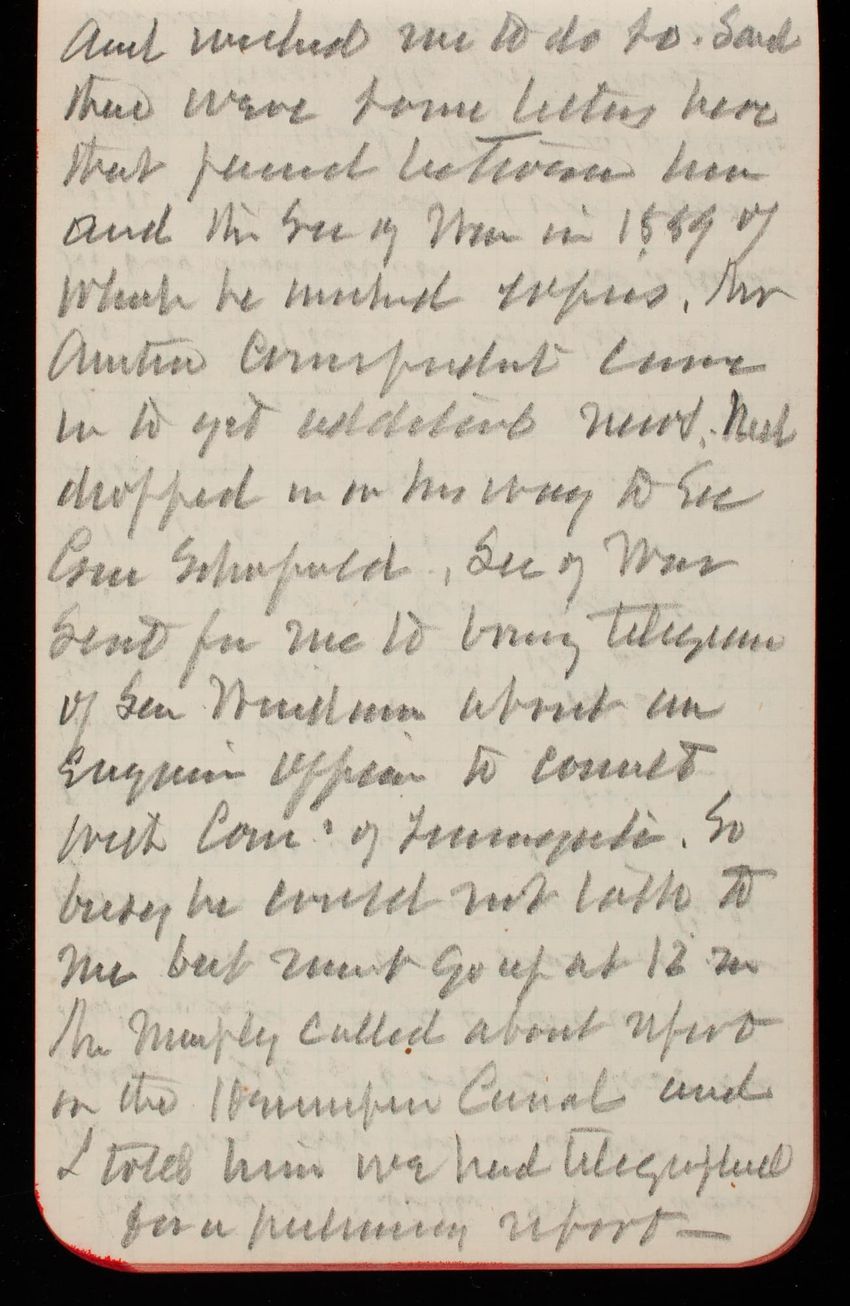 and wished me to do so. Said
there were some letters here
that passed between him
and the Sec of War in 1889 of
which he wished copies. Mr
Austin Correspondent came
in to get additional news. Neil
dropped in on his way to See
Genl Schofield, Sec of War
Sent for me to bring telegram
of Sec Windom about an
Engineer Officer to consult
with Com. of Immigrati. So
busy he could not talk to
me but must go up at 12 m
Mr Murphy called about report
on the Hennepin Canal and
I told him we had telegraphed
for a preliminary report —